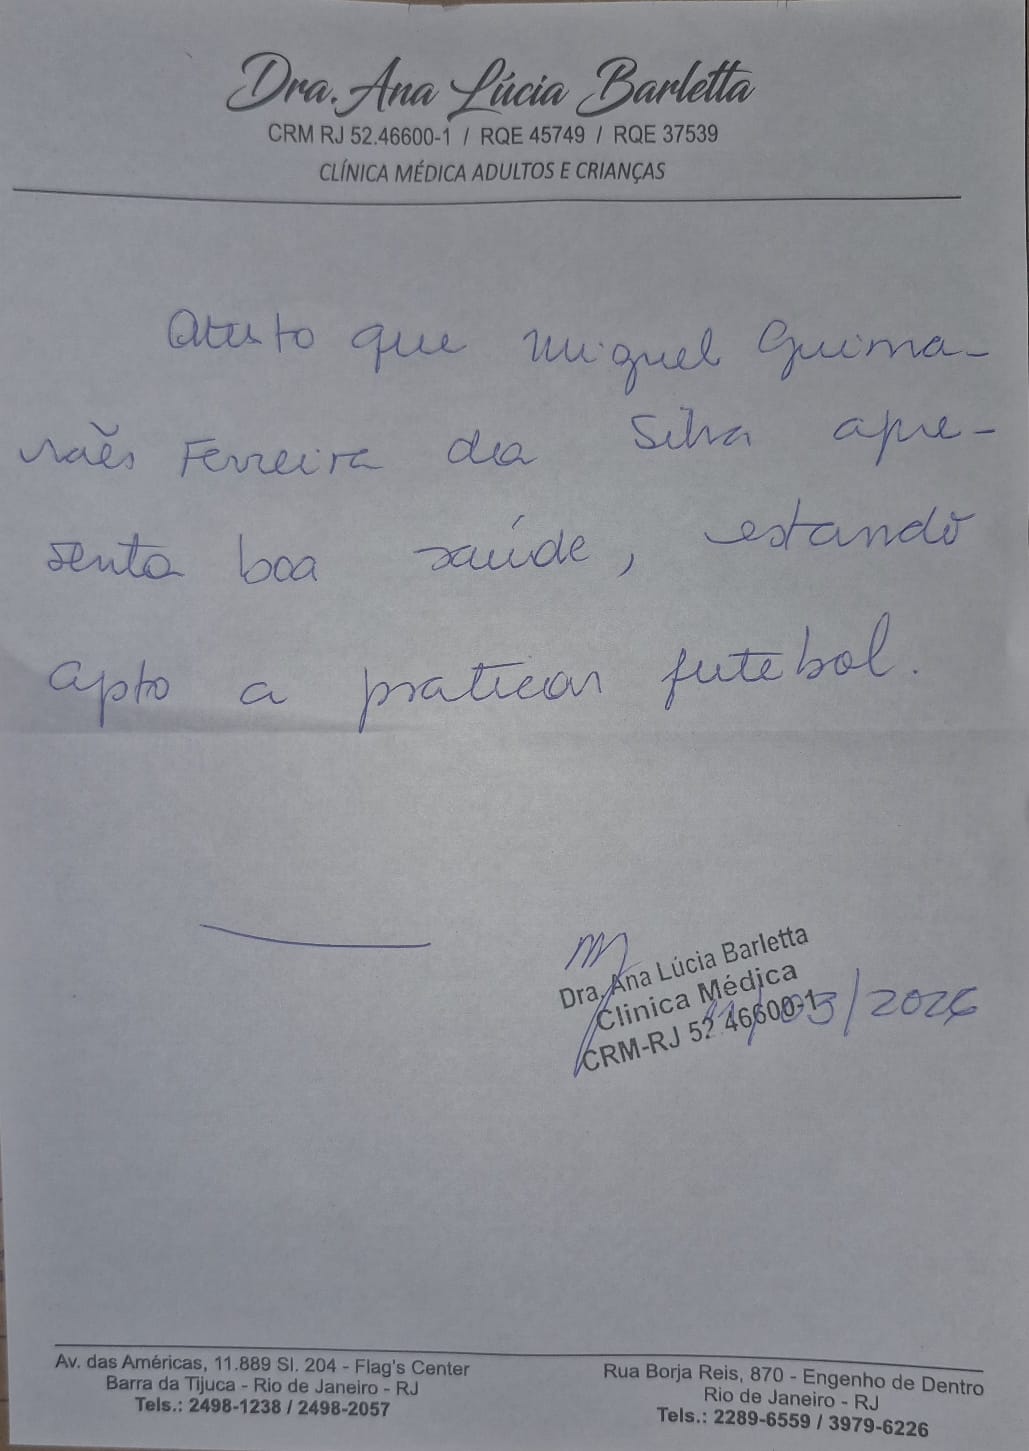 Dra. Ana Lúcia Barletta
CRM RJ 52.46600-1 / RQE 45749 / RQE 37539
CLÍNICA MÉDICA ADULTOS E CRIANÇAS
Atesto que Miguel Guima-
rães Ferreira da Silva apre-
senta boa saúde, estando
apto a praticar futebol.
Dra. Ana Lúcia Barletta
Clinica Médica
CRM-RJ 52 46600-1
/03/2026
Av. das Américas, 11.889 Sl. 204 - Flag's Center
Barra da Tijuca - Rio de Janeiro - RJ
Tels.: 2498-1238 / 2498-2057
Rua Borja Reis, 870 - Engenho de Dentro
Rio de Janeiro - RJ
Tels.: 2289-6559 / 3979-6226